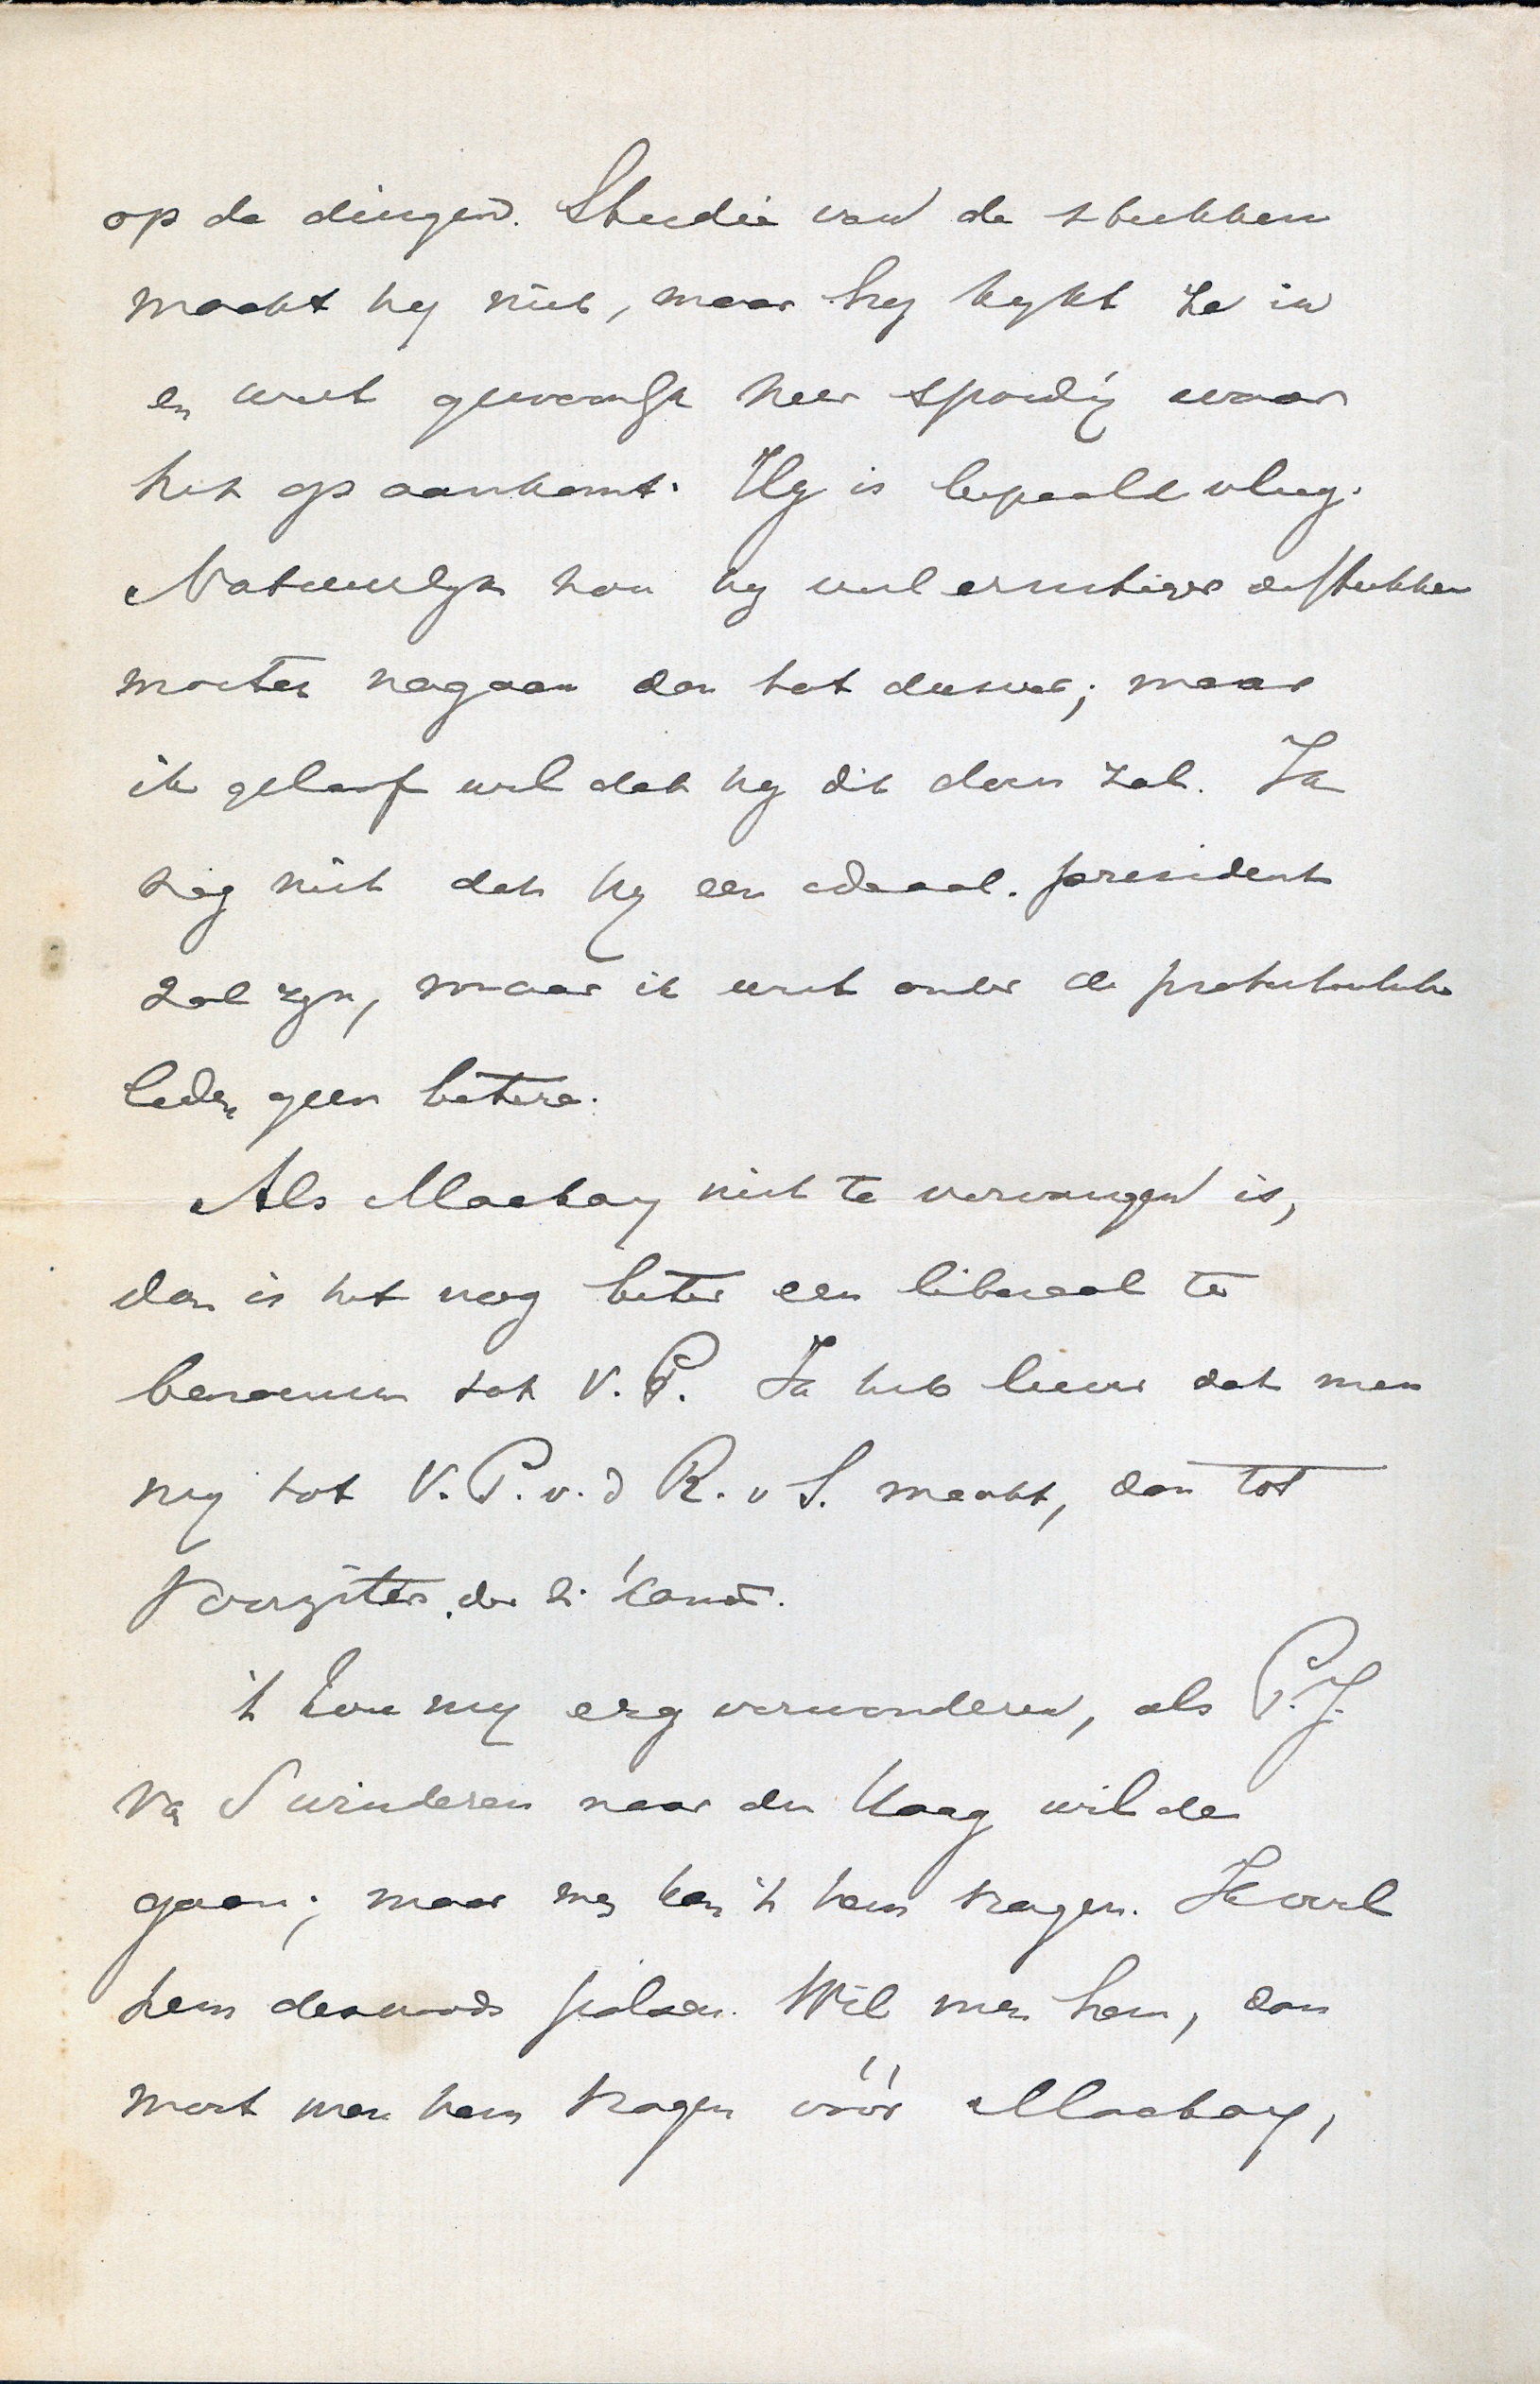 op de dingen. Studie van de stukken
maakt hy niet, maar hy kykt ze in
en weet gewoonlyk zeer spoedig waar
het op aankomt. Hy is bepaald vlug.
Natuurlyk zou hy wel ernstiger de stukken
moeten nagaan dan tot dusver; maar
ik geloof wel dat hy dit doen zal. Ik
zeg niet dat hy een ideaal-president
zal zyn, maar ik weet onder de protestantsche
leden geen betere.
Als Mackay niet te vervangen is,
dan is het nog beter een liberaal te
benoemen tot V.P. Ik heb liever dat men
my tot V.P.v.d R.v S. maakt, dan tot
Voorzitter der 2e Kamer.
't Zou my erg verwonderen, als P.J.
van Swinderen naar den Haag wilde
gaan; maar men kan 't hem vragen. Ik wil
hem desnoods polsen. Wil men hem, dan
moet men hem vragen vóór Mackay,